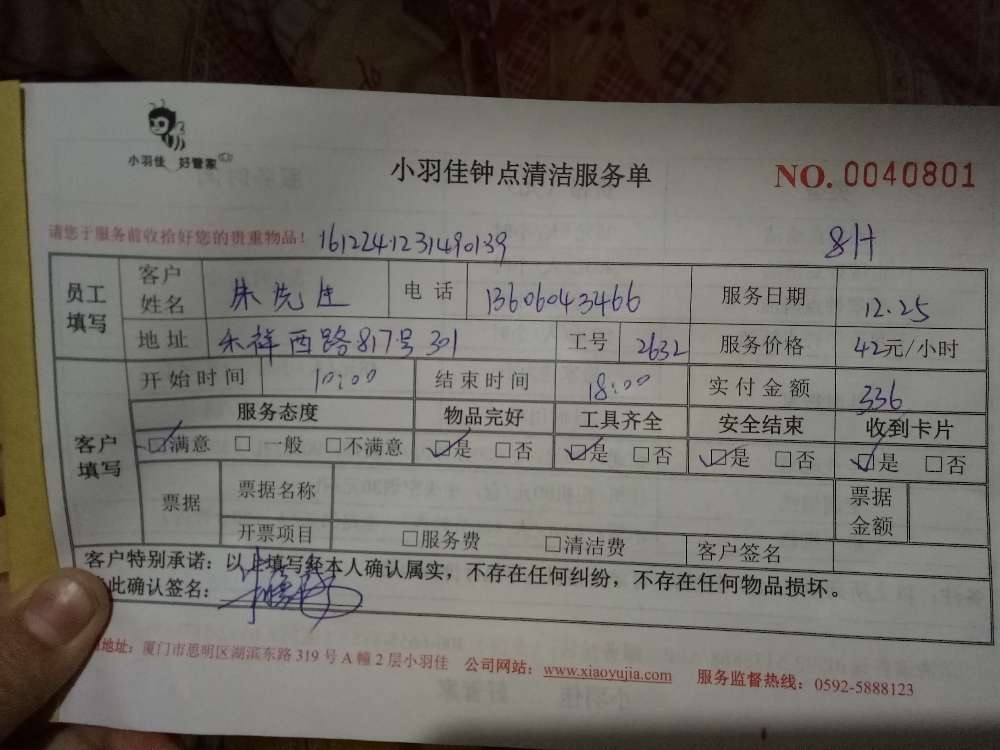 小羽佳 好管家
小羽佳钟点清洁服务单
NO. 0040801
请您于服务前收拾好您的贵重物品！ 1612241231490139 8H
员工填写 客户姓名 朱先生 电话 13606043466 服务日期 12.25
地址 禾祥西路817号301 工号 2632 服务价格 42元/小时
客户填写 开始时间 10:00 结束时间 18:00 实付金额 336
服务态度 物品完好 工具齐全 安全结束 收到卡片
☑满意 □一般 □不满意 ☑是 □否 ☑是 □否 ☑是 □否 ☑是 □否
票据 票据名称 票据金额
开票项目 □服务费 □清洁费 客户签名
客户特别承诺：以上填写经本人确认属实，不存在任何纠纷，不存在任何物品损坏。
此确认签名：
地址：厦门市思明区湖滨东路319号A幢2层小羽佳 公司网站：www.xiaoyujia.com 服务监督热线：0592-5888123